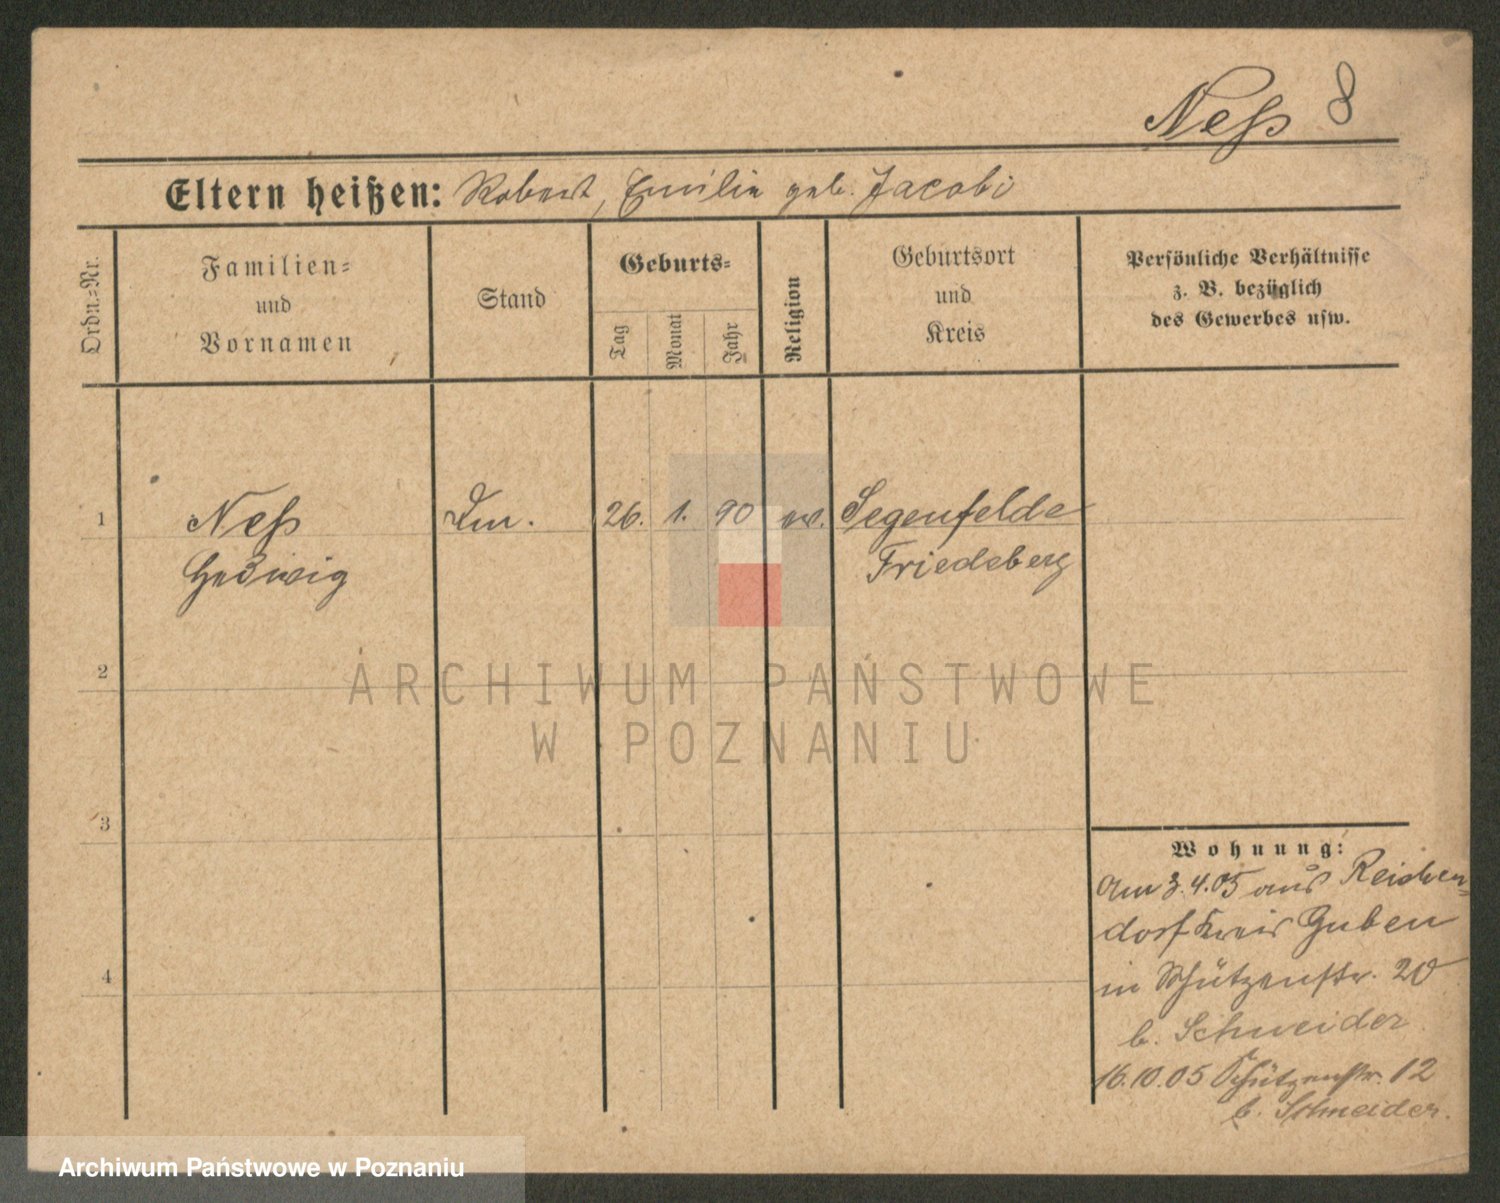 Neß 8
Eltern heißen: Robert, Emilie geb. Jacobi
Ordn.=Nr.
Familien=
und
Vornamen
Stand
Geburts=
Tag
Monat
Jahr
Religion
Geburtsort
und
Kreis
Persönliche Verhältnisse
z. B. bezüglich
des Gewerbes usw.
1 Neß 26. 1. 90 ev. Segenfelde
Hedwig Friedeberg
2
3
4
Wohnung:
Am 3.4.05 aus Reichen=
dorf Kreis Guben
in Schützenstr. 20
b. Schneider
16.10.05 Schützenstr. 12
b. Schneider.
ARCHIWUM PAŃSTWOWE
W POZNANIU
Archiwum Państwowe w Poznaniu